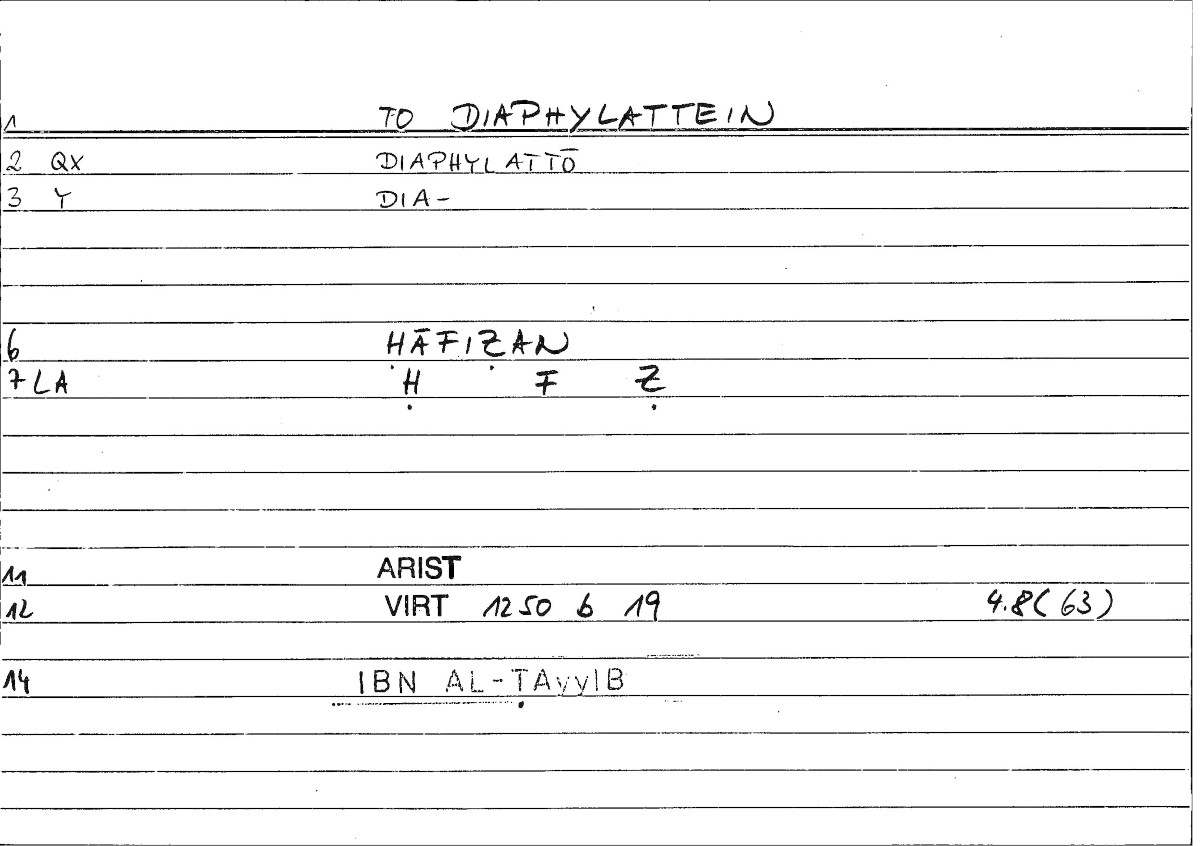 1 TO DIAPHYLATTEIN
2 QX DIAPHYLATTŌ
3 Y DIA-
6 ḤĀFIẒAN
7 LA Ḥ F Ẓ
11 ARIST
12 VIRT 1250 b 19 4.8(63)
14 IBN AL-ṬAyyIB